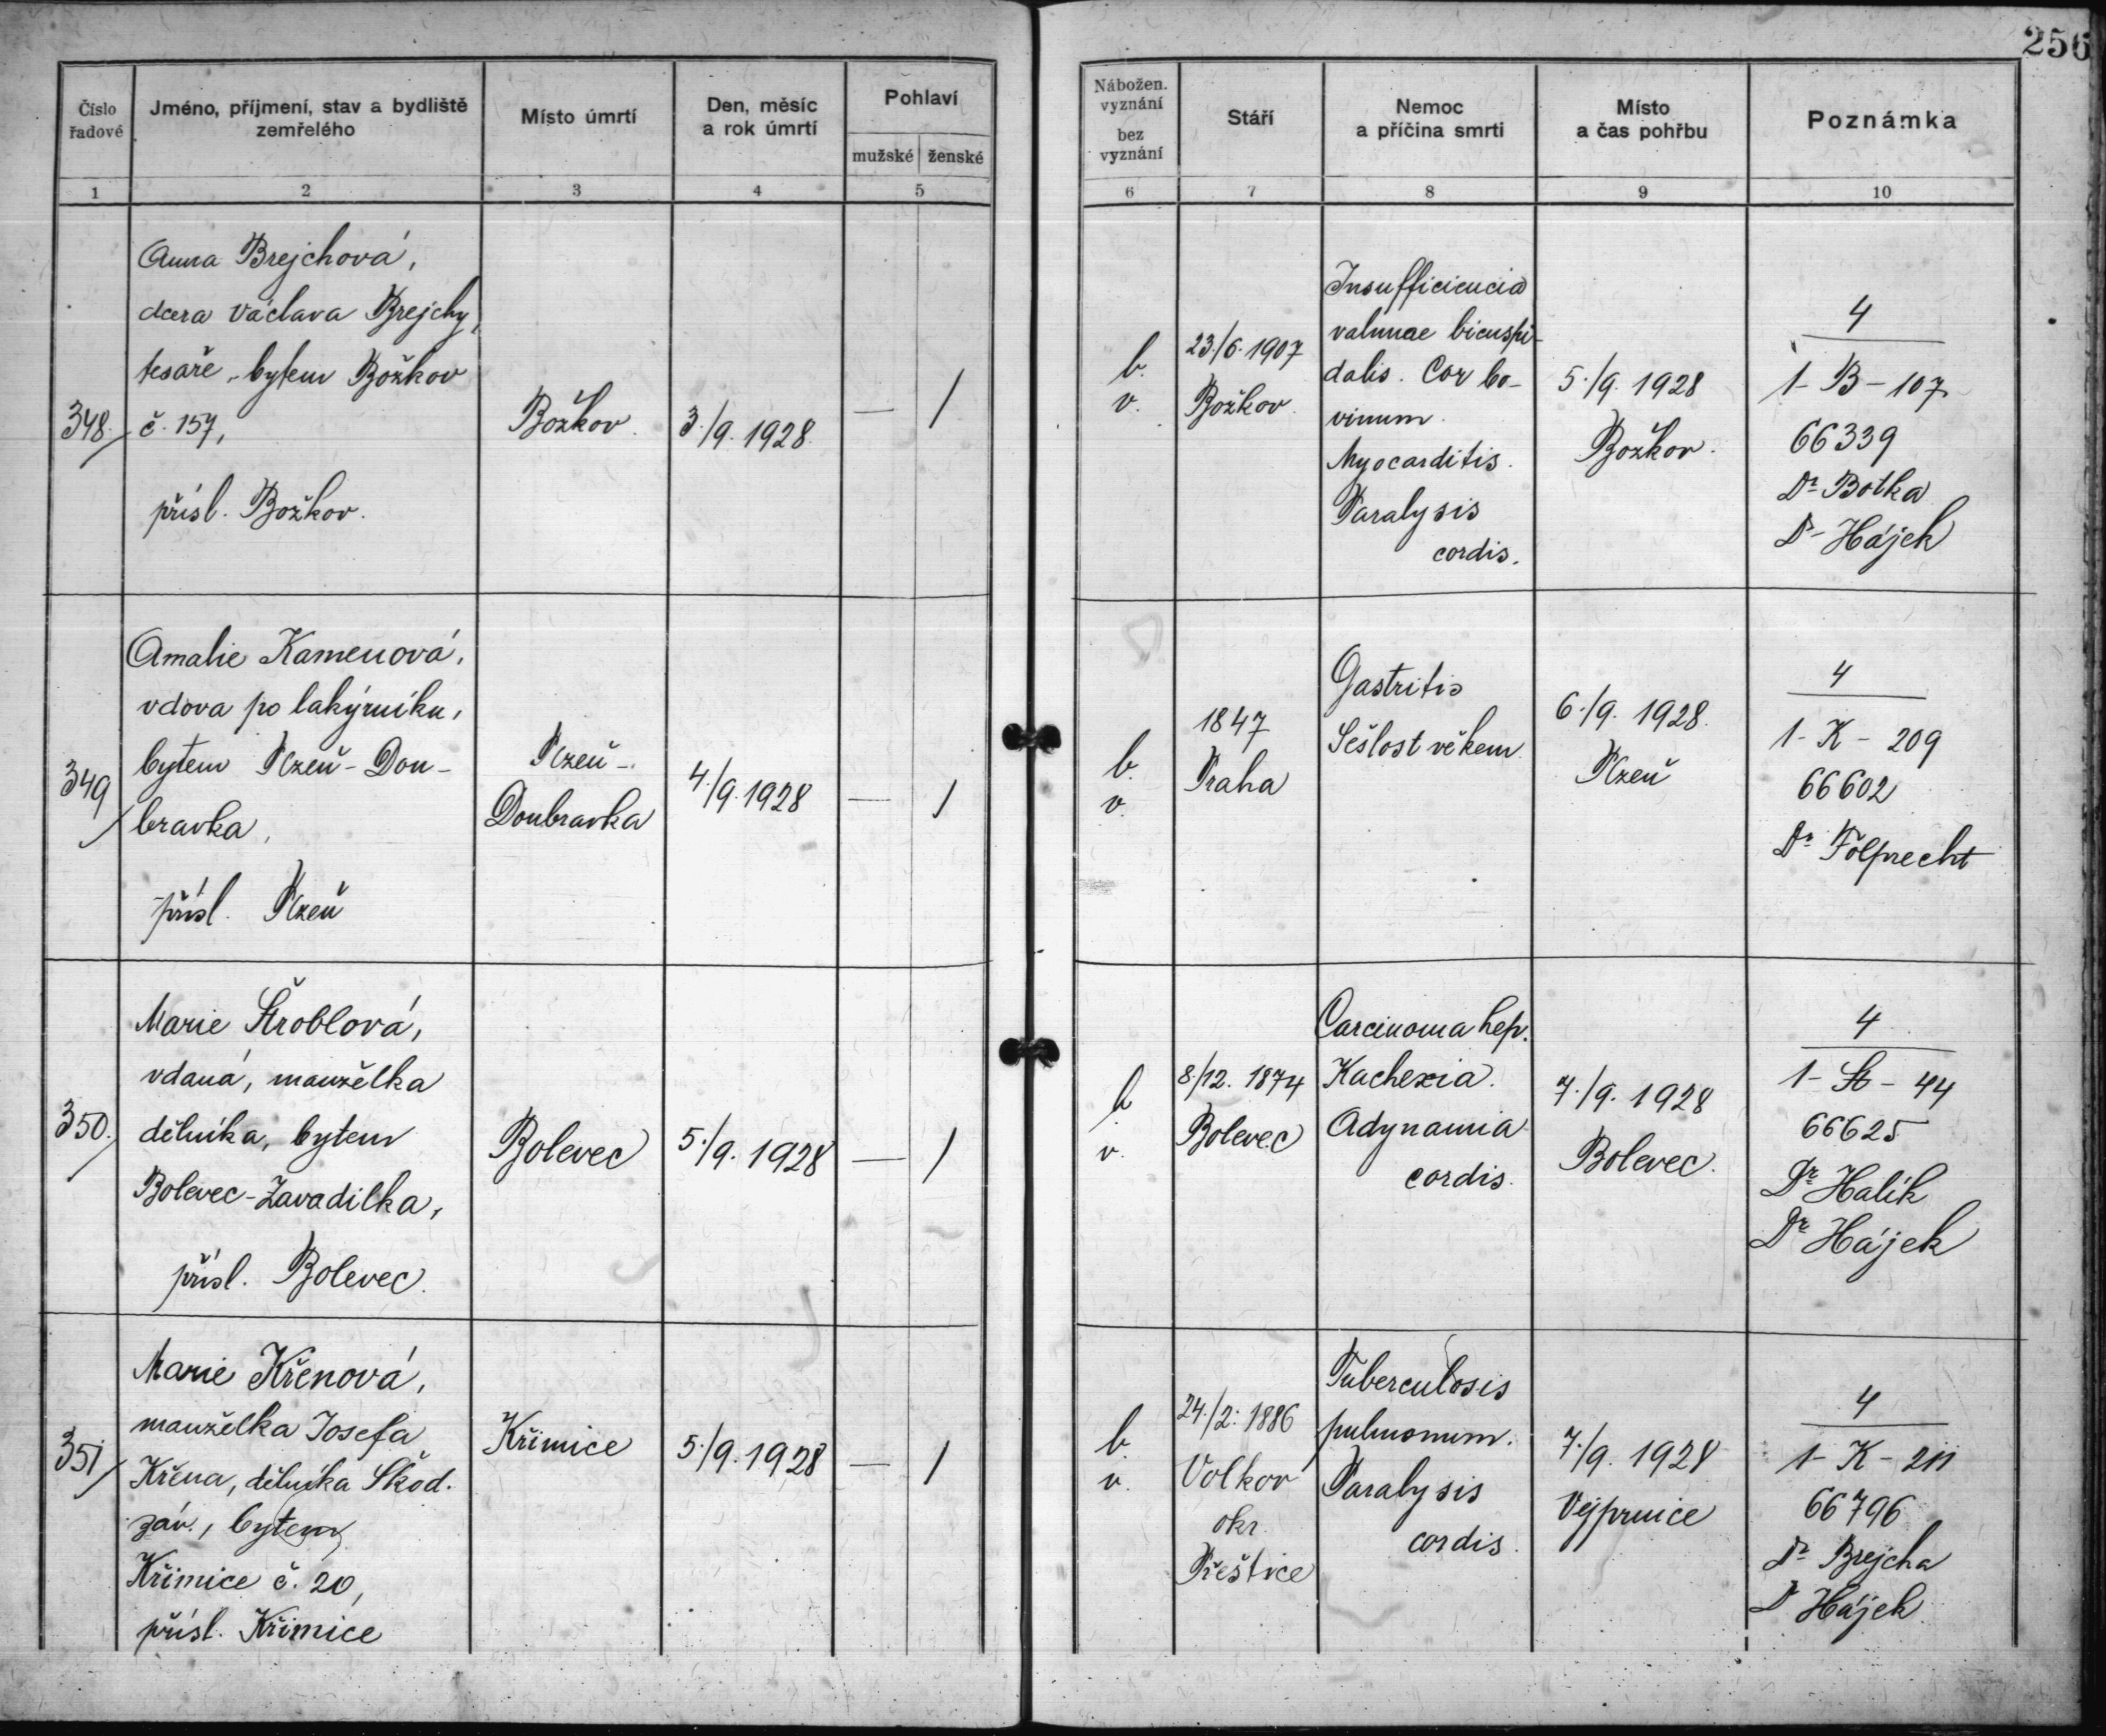 256
Číslo řadové
Jméno, příjmení, stav a bydliště zemřelého
Místo úmrtí
Den, měsíc a rok úmrtí
Pohlaví
mužské
ženské
Nábožen. vyznání
bez vyznání
Stáří
Nemoc a příčina smrti
Místo a čas pohřbu
Poznámka
1
2
3
4
5
6
7
8
9
10
348.
Anna Brejchová,
dcera Václava Brejchy,
tesaře, bytem Božkov
č. 157,
přísl. Božkov.
Božkov.
3./9. 1928.
— /
b.
v.
23./6. 1907
Božkov.
Insufficiencia
valvulae bicuspi-
dalis. Cor bo-
vinum.
Myocarditis.
Paralysis
cordis.
5./9. 1928
Božkov.
4
1-B-107
66339
Dr Botka
Dr Hájek
349
Amalie Kamenová,
vdova po lakýrníku,
bytem Plzeň-Dou-
bravka,
přísl. Plzeň
Plzeň-
Doubravka
4./9. 1928
— /
b.
v.
1847
Praha
Gastritis
Sešlost věkem
6./9. 1928.
Plzeň
4
1-K-209
66602
Dr Folprecht
350.
Marie Štroblová,
vdaná, manželka
dělníka, bytem
Bolevec-Zavadilka,
přísl. Bolevec.
Bolevec
5./9. 1928
— /
b
v.
8./12. 1874
Bolevec
Carcinoma hep.
Kachexia.
Adynamia
cordis.
7./9. 1928
Bolevec.
4
1-Št-44
66625
Dr Halík
Dr Hájek
351
Marie Křenová,
manželka Josefa
Křena, dělníka Škod.
záv., bytem
Křimice č. 20,
přísl. Křimice
Křimice
5./9. 1928
— /
b.
v.
24./2. 1886
Volkov
okr.
Přeštice
Tuberculosis
pulmonum.
Paralysis
cordis.
7./9. 1928
Vejprnice
4
1-K-211
66796
Dr Brejcha
Dr Hájek